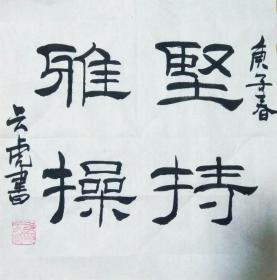 庚子春
堅持
雅操
吴虎書